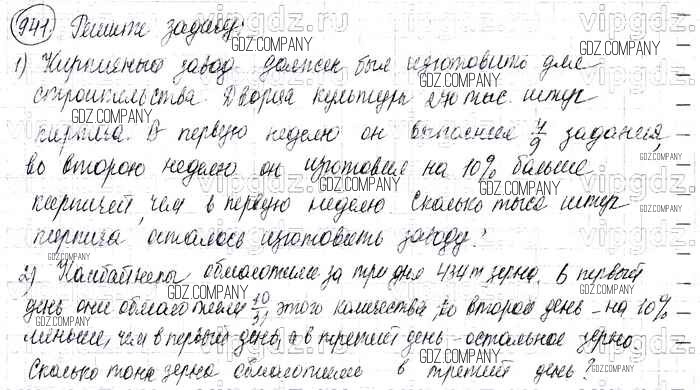 941. Решите задачу:
1) Кирпичный завод должен был изготовить для
строительства Дворца культуры 270 тыс. штук
кирпича. В первую неделю он выполнил 7/9 задания,
во вторую неделю он изготовил на 10% больше
кирпичей, чем в первую неделю. Сколько тысяч штук
кирпича осталось изготовить заводу?
2) Комбайнеры обмолотили за три дня 434 т зерна. В первый
день они обмолотили 10/31 этого количества, во второй день – на 10%
меньше, чем в первый день, а в третий день – остальное зерно.
Сколько тонн зерна обмолотили в третий день?